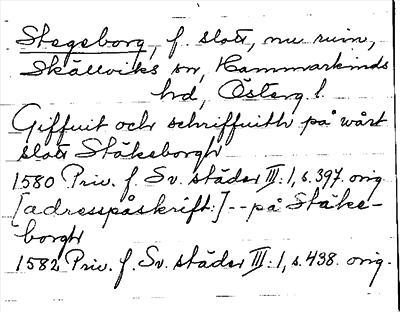 Stegeborg, f. slott, nu ruin,
Skällviks sn, Hammarkinds
hd, Östergl.
Giffuit och schriffuith på wårt
slott Stäkeborgh
1580 Priv. f. Sv. städer III:1, s. 397. orig
[adresspåskrift:] -- på Stäke-
borgh
1582 Priv. f. Sv. städer III:1, s. 438. orig.